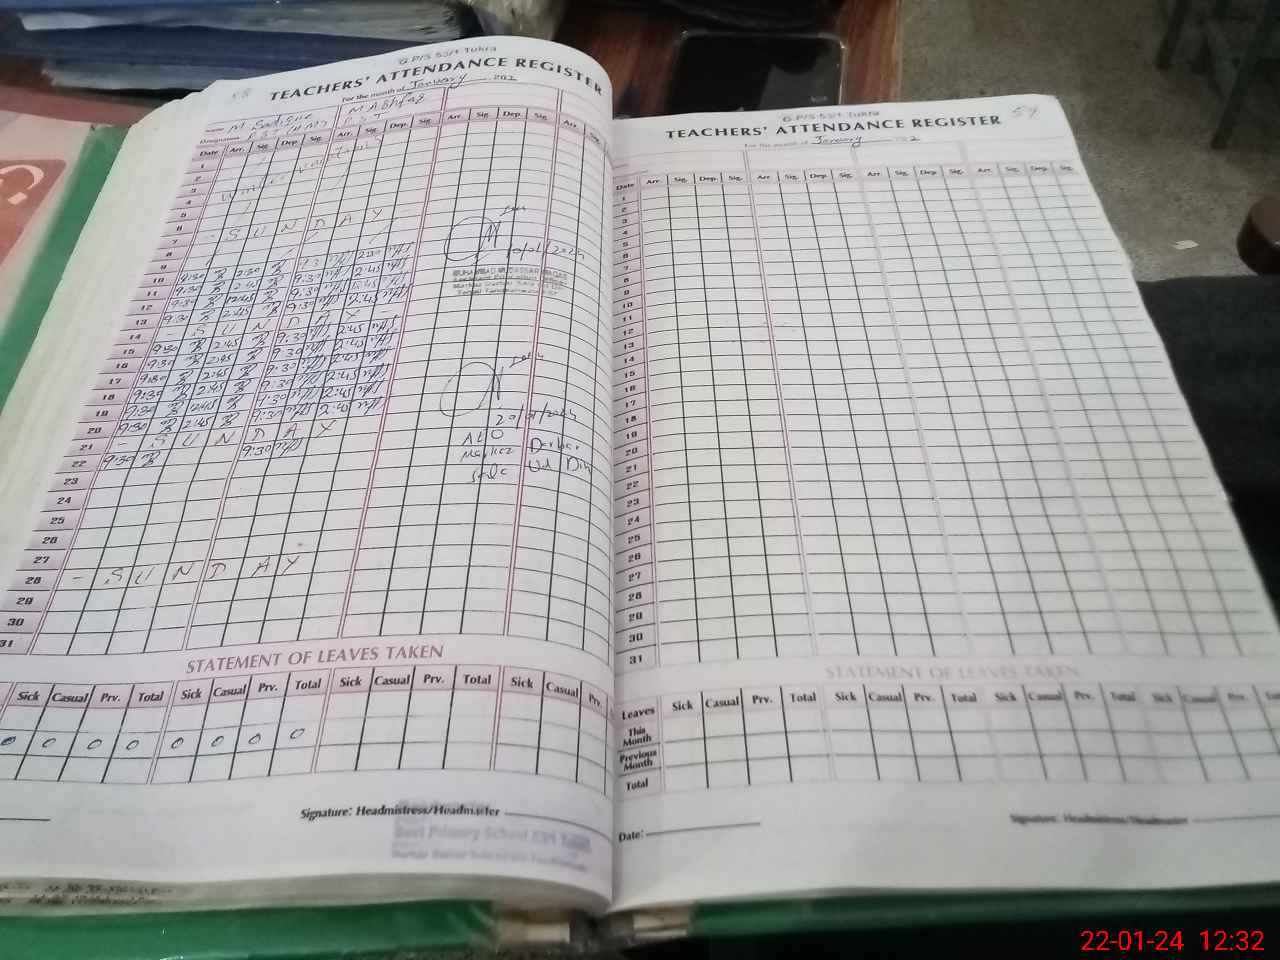 58
G.P/S 53/1 Tukra
TEACHERS' ATTENDANCE REGISTER
For the month of January 202
Name M. Sadique M. Ashfaq
Designation PST (HM) P.S.T
Date Arr. Sig. Dep. Sig. Arr. Sig. Dep. Sig. Arr. Sig. Dep. Sig. Arr. Sig.
1
2
3
4
5
6
7 - S U N D A Y
8
9
10 9:30 2:30 9:30 2:30
11 9:30 2:45 9:30 2:45
12 9:30 12:45 9:30 12:45
13 9:30 2:45 9:30 2:45
14 - S U N D A Y -
15 9:30 2:45 9:30 2:45
16 9:30 2:45 9:30 2:45
17 9:30 2:45 9:30 2:45
18 9:30 2:45 9:30 2:45
19 9:30 2:45 9:30 2:45
20 9:30 2:45 9:30 2:45
21 - S U N D A Y
22 9:30 9:30
23
24
25
26
27
28 - S U N D A Y
29
30
31
10/01/2024
20/01/2024
AEO
Markaz Darbar
Ud Din
STATEMENT OF LEAVES TAKEN
Sick Casual Prv. Total Sick Casual Prv. Total Sick Casual Prv. Total Sick Casual Prv.
0 0 0 0 0 0 0 0
Signature: Headmistress/Headmaster
G.P/S 53/1 Tukra
59
TEACHERS' ATTENDANCE REGISTER
For the month of January 202
Date Arr. Sig. Dep. Sig. Arr. Sig. Dep. Sig. Arr. Sig. Dep. Sig. Arr. Sig. Dep. Sig.
1
2
3
4
5
6
7
8
9
10
11
12
13
14
15
16
17
18
19
20
21
22
23
24
25
26
27
28
29
30
31
STATEMENT OF LEAVES TAKEN
Leaves Sick Casual Prv. Total Sick Casual Prv. Total Sick Casual Prv. Total Sick Casual Prv.
This
Month
Previous
Month
Total
Date:
Signature: Headmistress/Headmaster
22-01-24 12:32